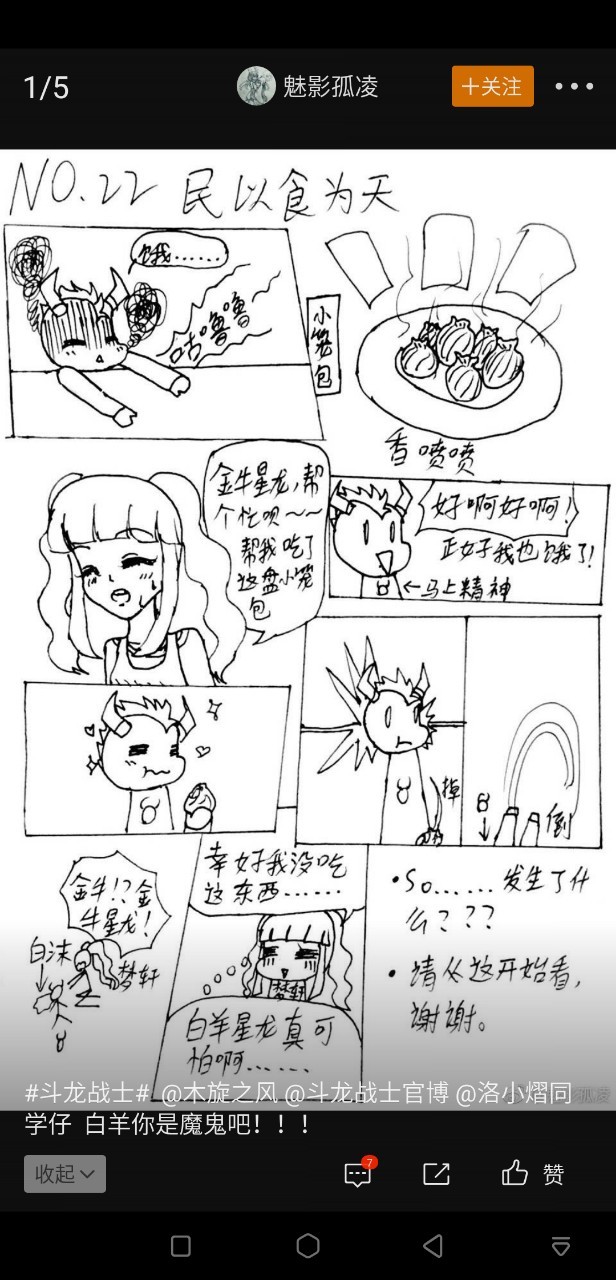 1/5
魅影孤凌
+关注
NO.22 民以食为天
饿……
咕噜噜
小笼包
香喷喷
金牛星龙,帮
个忙呗～～
帮我吃了
这盘小笼
包
好啊好啊!
正好我也饿了!
←马上精神
掉
倒
金牛!?金
牛星龙!
白沫
梦轩
幸好我没吃
这东西……
梦轩
白羊星龙真可
怕啊……
•So……发生了什
么???
•请从这开始看,
谢谢。
#斗龙战士# @木旋之风 @斗龙战士官博 @洛小熠同
学仔 白羊你是魔鬼吧！！！
收起
7
赞